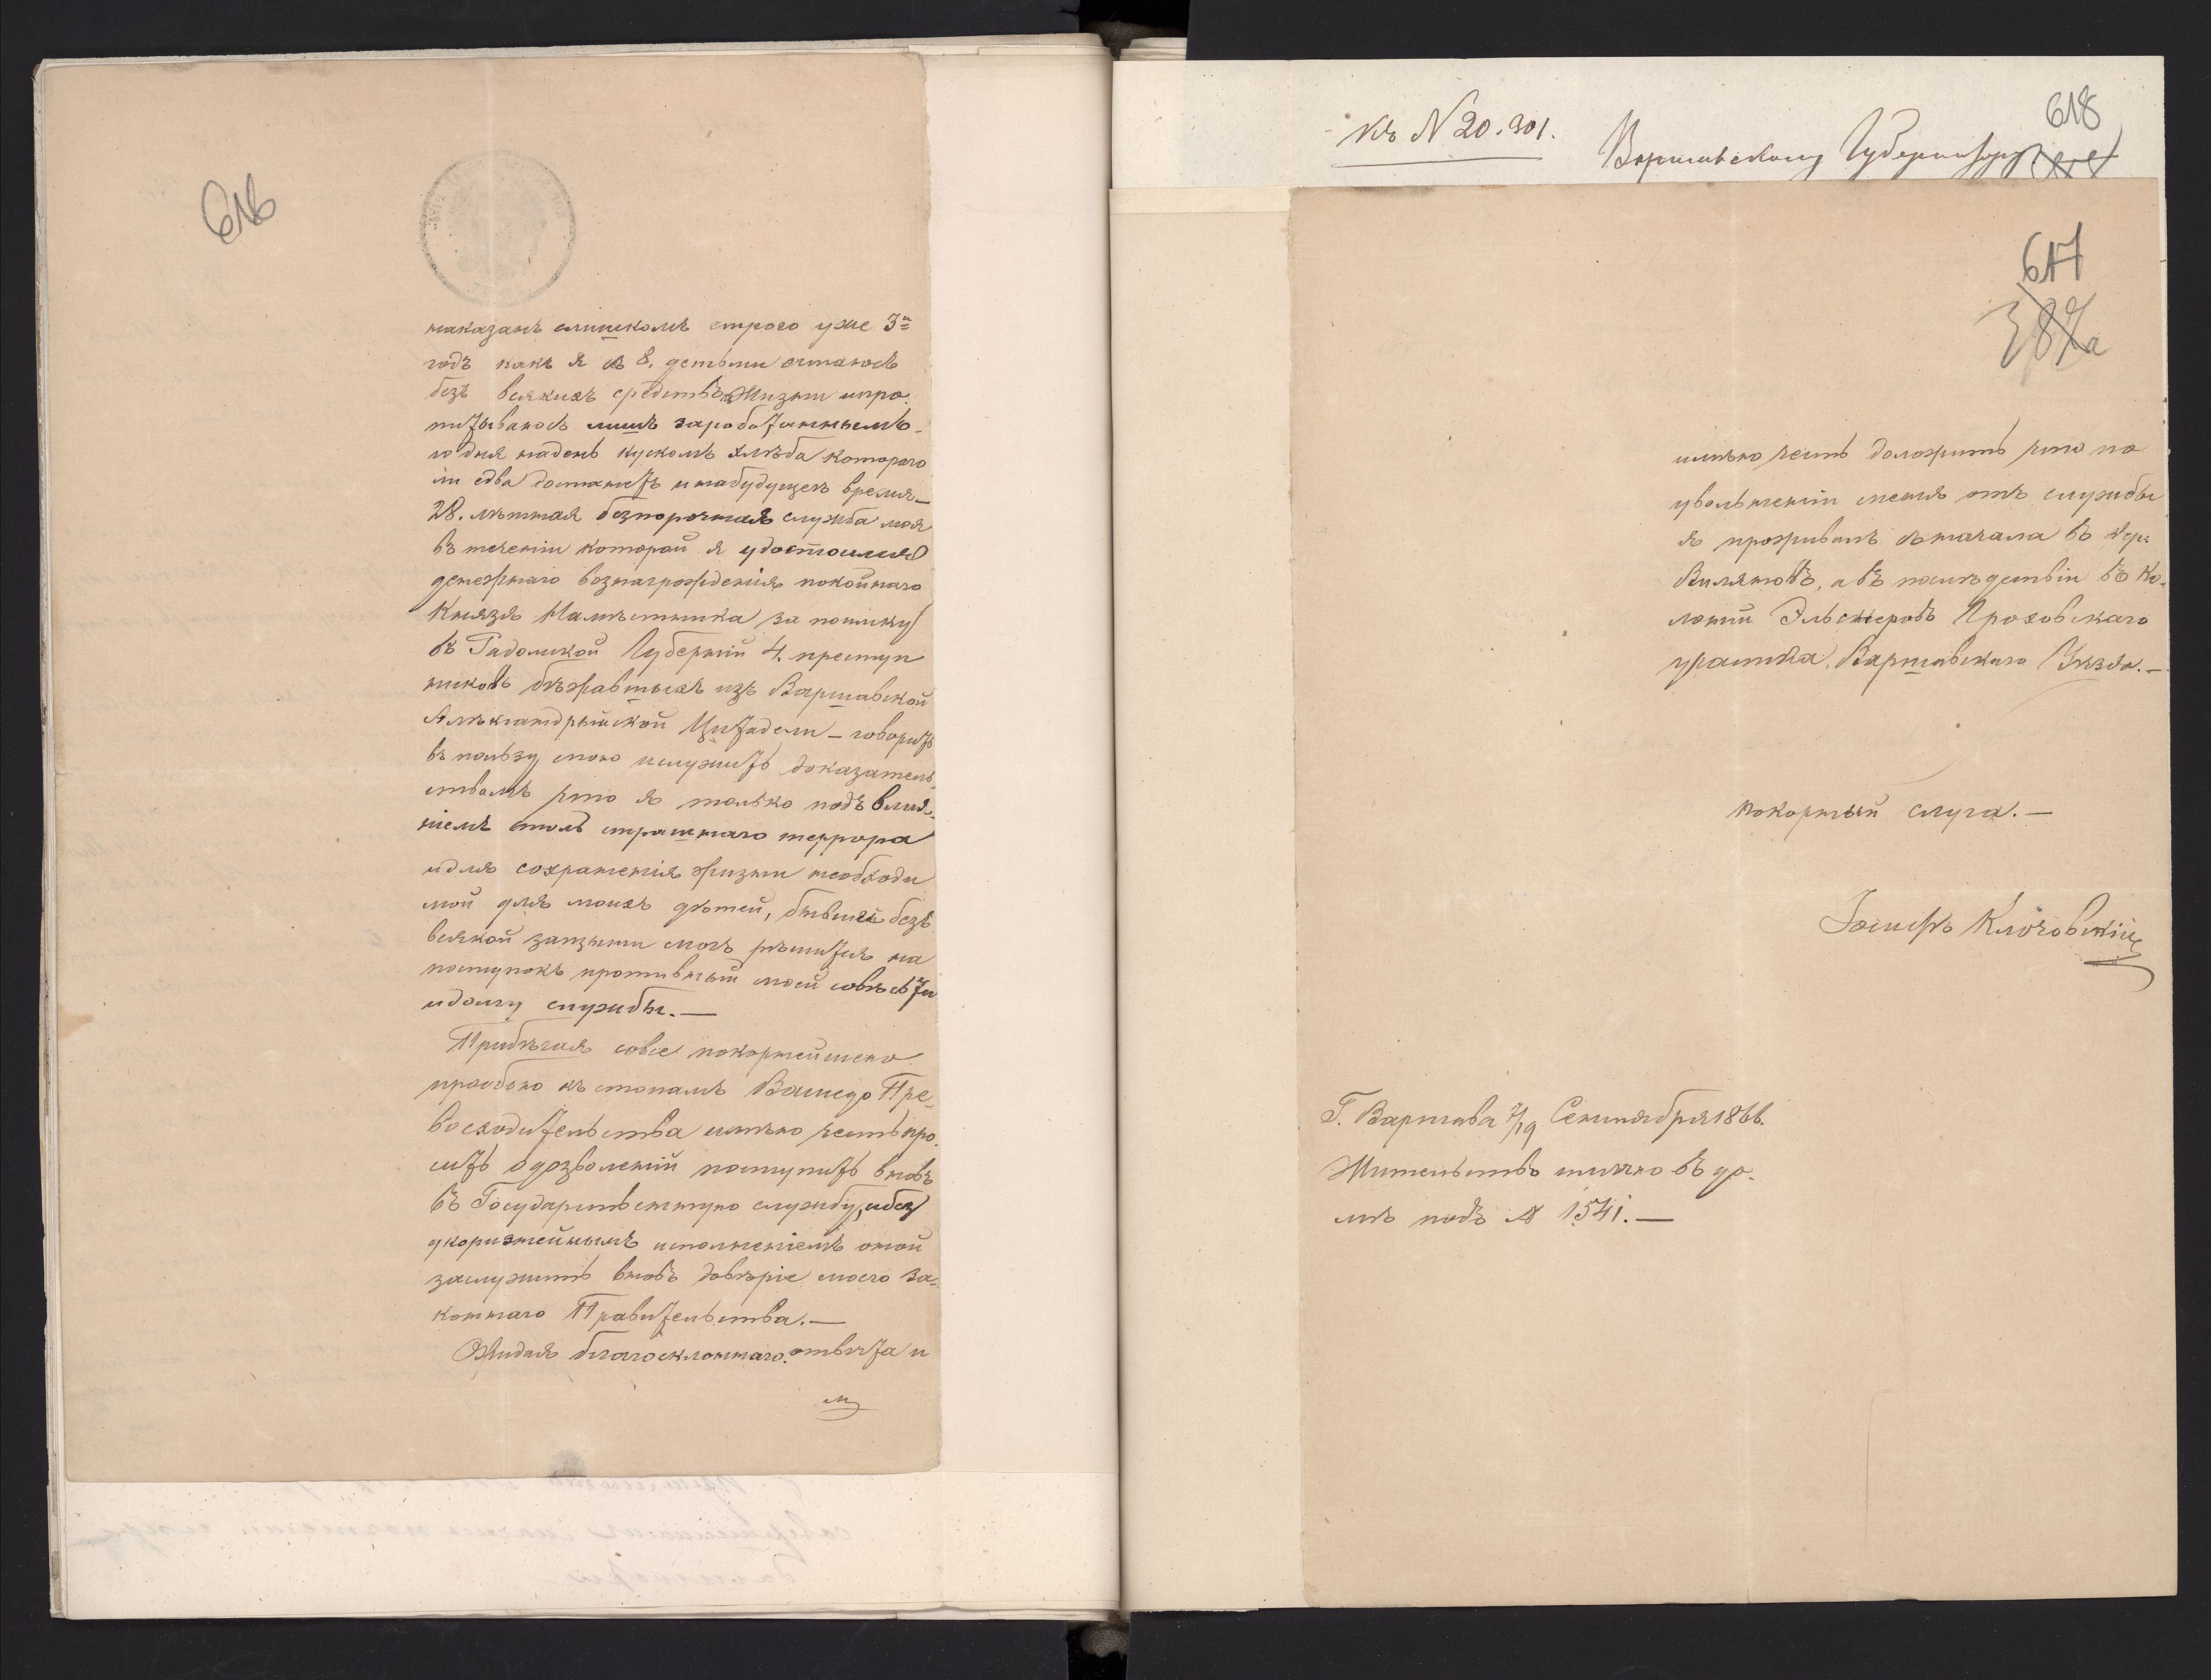 616
наказанъ слишкомъ строго уже 3й
годъ какъ я съ 8. детьми остаюсь
безъ всякихъ средствъ жизни ипро-
питываюсь лишъ заработаннымъ
со дня надень кускомъ хлѣба котораго
ли едва достанетъ инабудущее время —
28. лѣтная безпорочная служба моя
въ теченіи которой я удостоился
денежнаго вознагражденія покойнаго
Князя Намѣстника за поимку
въ Радомской Губерніи 4. преступ
никовъ бѣжавшихъ изъ Варшавской
Алѣксандрыйской Цитадели — говоритъ
въ пользу мою ислужитъ доказатель
ствомъ что я только подъ влия-
ніемъ столь страшнаго террора
идля сохраненія жизни необходи
мой для моихъ дѣтей, бывшей безъ
всякой защиты могъ рѣшится на
поступокъ противный моей совѣсти
идолгу службы. —
Прибѣгая совсе покорнейшею
прозбою къ стопамъ Вашего Пре-
восходительства имѣю честь про-
ситъ одозволеніи поступитъ вновь
въ Государственную службу, ибез
укоризнейнымъ исполненіемъ оной
заслужить вновь довѣріе моего За-
коннаго Правительства. —
Ожидая благосклоннаго отвѣта и
къ N 20.301.
Варшавскому Губернатору
618
617
387a
имѣю честь доложить что по
увольненіи меня отъ службы
я проживалъ сначала въ дер:
Виляновѣ, авъ послѣдствіи въ Ко-
лоніи Эльснеровъ Гроховскаго
участка, Варшавскаго Уѣзда. —
покорный слуга. —
Іосифъ Клочовскій
Г. Варшава 7/19 Сентября 1866.
Жительство имѣю въ до-
мѣ подъ № 1541. —